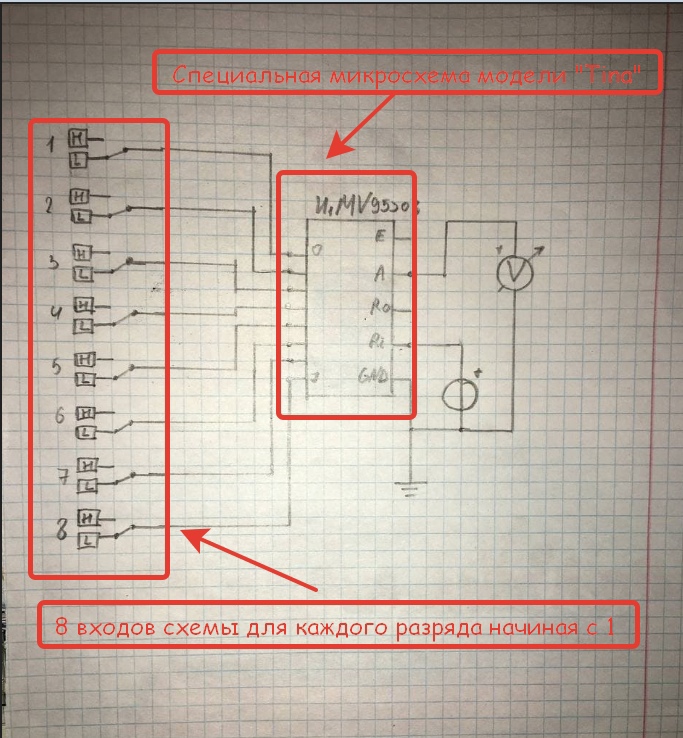 Специальная микросхема модели "Tina"
1 H
L
2 H
L
3 H
L
4 H
L
5 H
L
6 H
L
7 H
L
8 H
L
0
E
A
GND
V
+
8 входов схемы для каждого разряда начиная с 1